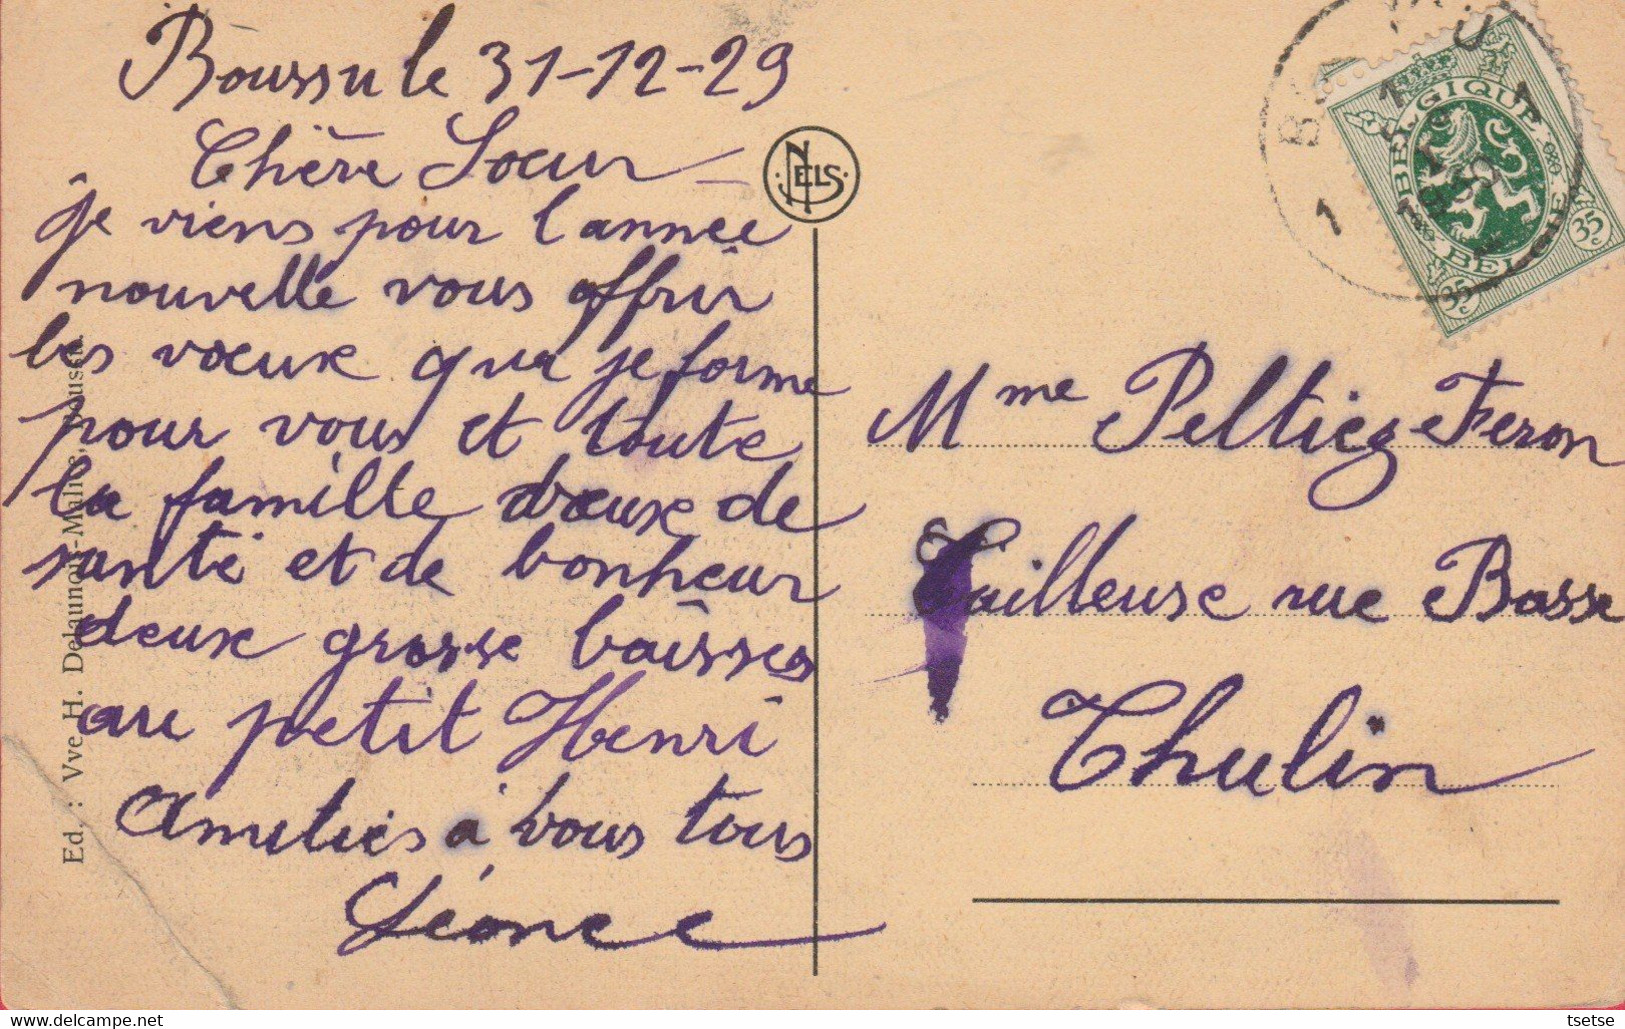 Boussu le 31-12-29
Chère Soeur
je viens pour l'année
nouvelle vous offrir
les voeux que je forme
pour vous et toute
la famille voeux de
santé et de bonheur
deux grosse baisses
au petit Henri
Amitiés à vous tous
Léonce
Ed : Vve H. Delaunois-Malice, Boussu.
NELS
BOUSSU
1
1
1930
BELGIQUE
BELGIE
35c
35c
Mme Peltiez-Feron
Tailleuse rue Basse
Thulin
tsetse